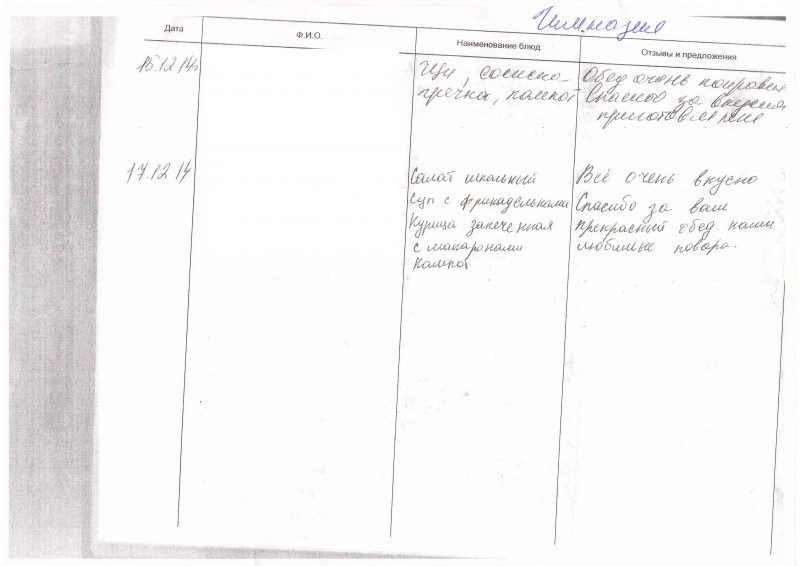 Гимназия
Дата Ф.И.О. Наименование блюд Отзывы и предложения
15.12.14 Щи, сосиска Обед очень понравился
гречка, компот Спасибо за
17.12.14 Салат школьный Всё очень вкусно
Суп с фрикадельками Спасибо за ваш
Курица запеченная прекрасный обед наши
с макаронами любимые повара.
Компот